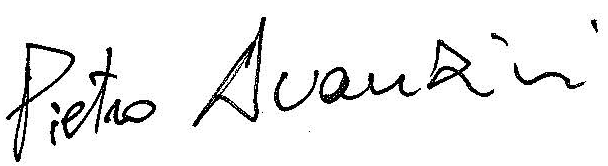 Pietro Avanzini